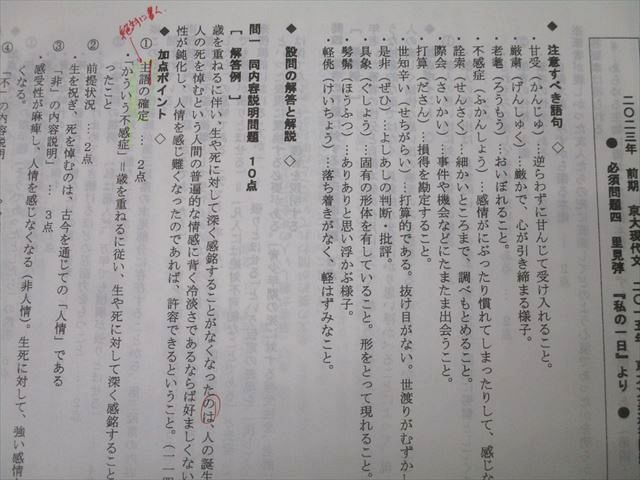 二〇二三年 前期 京大現代文
● 必須問題四 里見弴 『私の一日』より ●
◇ 注意すべき語句 ◇
・甘受(かんじゅ)…逆らわずに甘んじて受け入れること。
・厳粛(げんしゅく)…厳かで、心が引き締まる様子。
・老耄(ろうもう)…おいぼれること。
・不感症(ふかんしょう)…感情がにぶったり慣れてしまったりして、感じな
・詮索(せんさく)…細かいところまで、調べもとめること。
・際会(さいかい)…事件や機会などにたまたま出会うこと。
・打算(ださん)…損得を勘定すること。
・世知辛い(せちがらい)…打算的である。抜け目がない。世渡りがむずかし
・是非(ぜひ)…よしあしの判断・批評。
・具象(ぐしょう)…固有の形体を有していること。形をとって現れること。
・髣髴(ほうふつ)…ありありと思い浮かぶ様子。
・軽佻(けいちょう)…落ち着きがなく、軽はずみなこと。
◆ 設問の解答と解説 ◇
問一 同内容説明問題 10点
[ 解答例 ]
歳を重ねるに伴い、生や死に対して深く感銘することがなくなったのは、人の誕生
人の死を悼むという人間の普遍的な情感に背く冷淡さであるならば好ましくない
性が鈍化し、人情を感じ難くなったのであれば、許容できるということ。
◆ 加点ポイント ◇
① 主語の確定 … 2点
「かういう不感症」＝歳を重ねるに従い、生や死に対して深く感銘すること
ったこと
② 前提状況 … 2点
・生を祝ぎ、死を悼むのは、古今を通じての「人情」である
③ 「非」の内容説明」… 3点
・感受性が麻痺し、人情を感じなくなる(非人情)。生死に対して、強い感情
くなる。
④ 「不」の内容説明